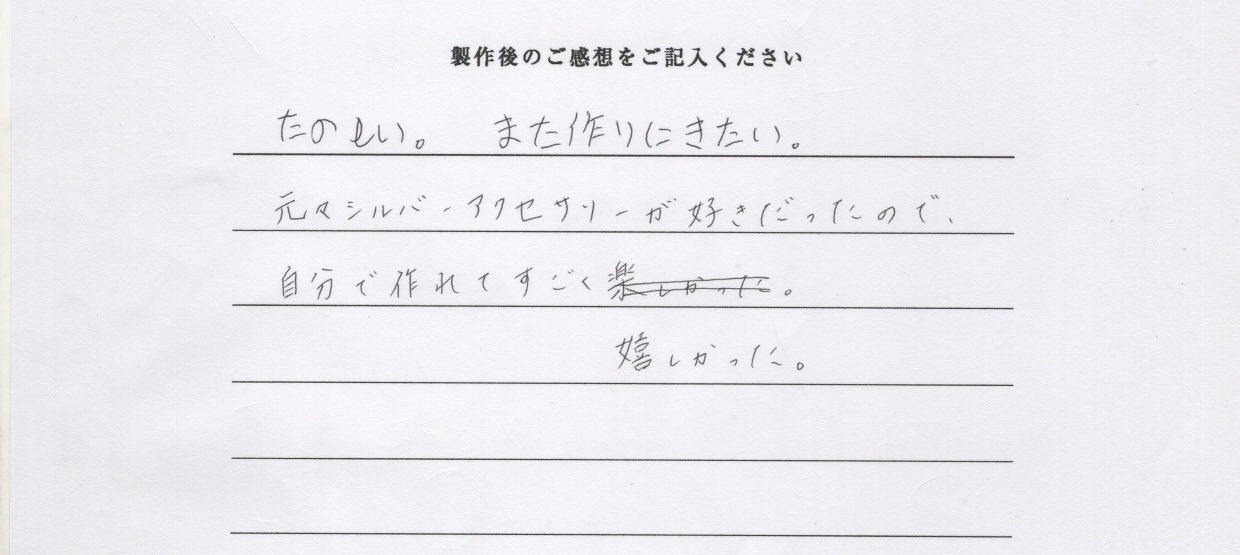 製作後のご感想をご記入ください
たのしい。 また作りにきたい。
元々シルバーアクセサリーが好きだったので、
自分で作れてすごく楽しかった。
嬉しかった。